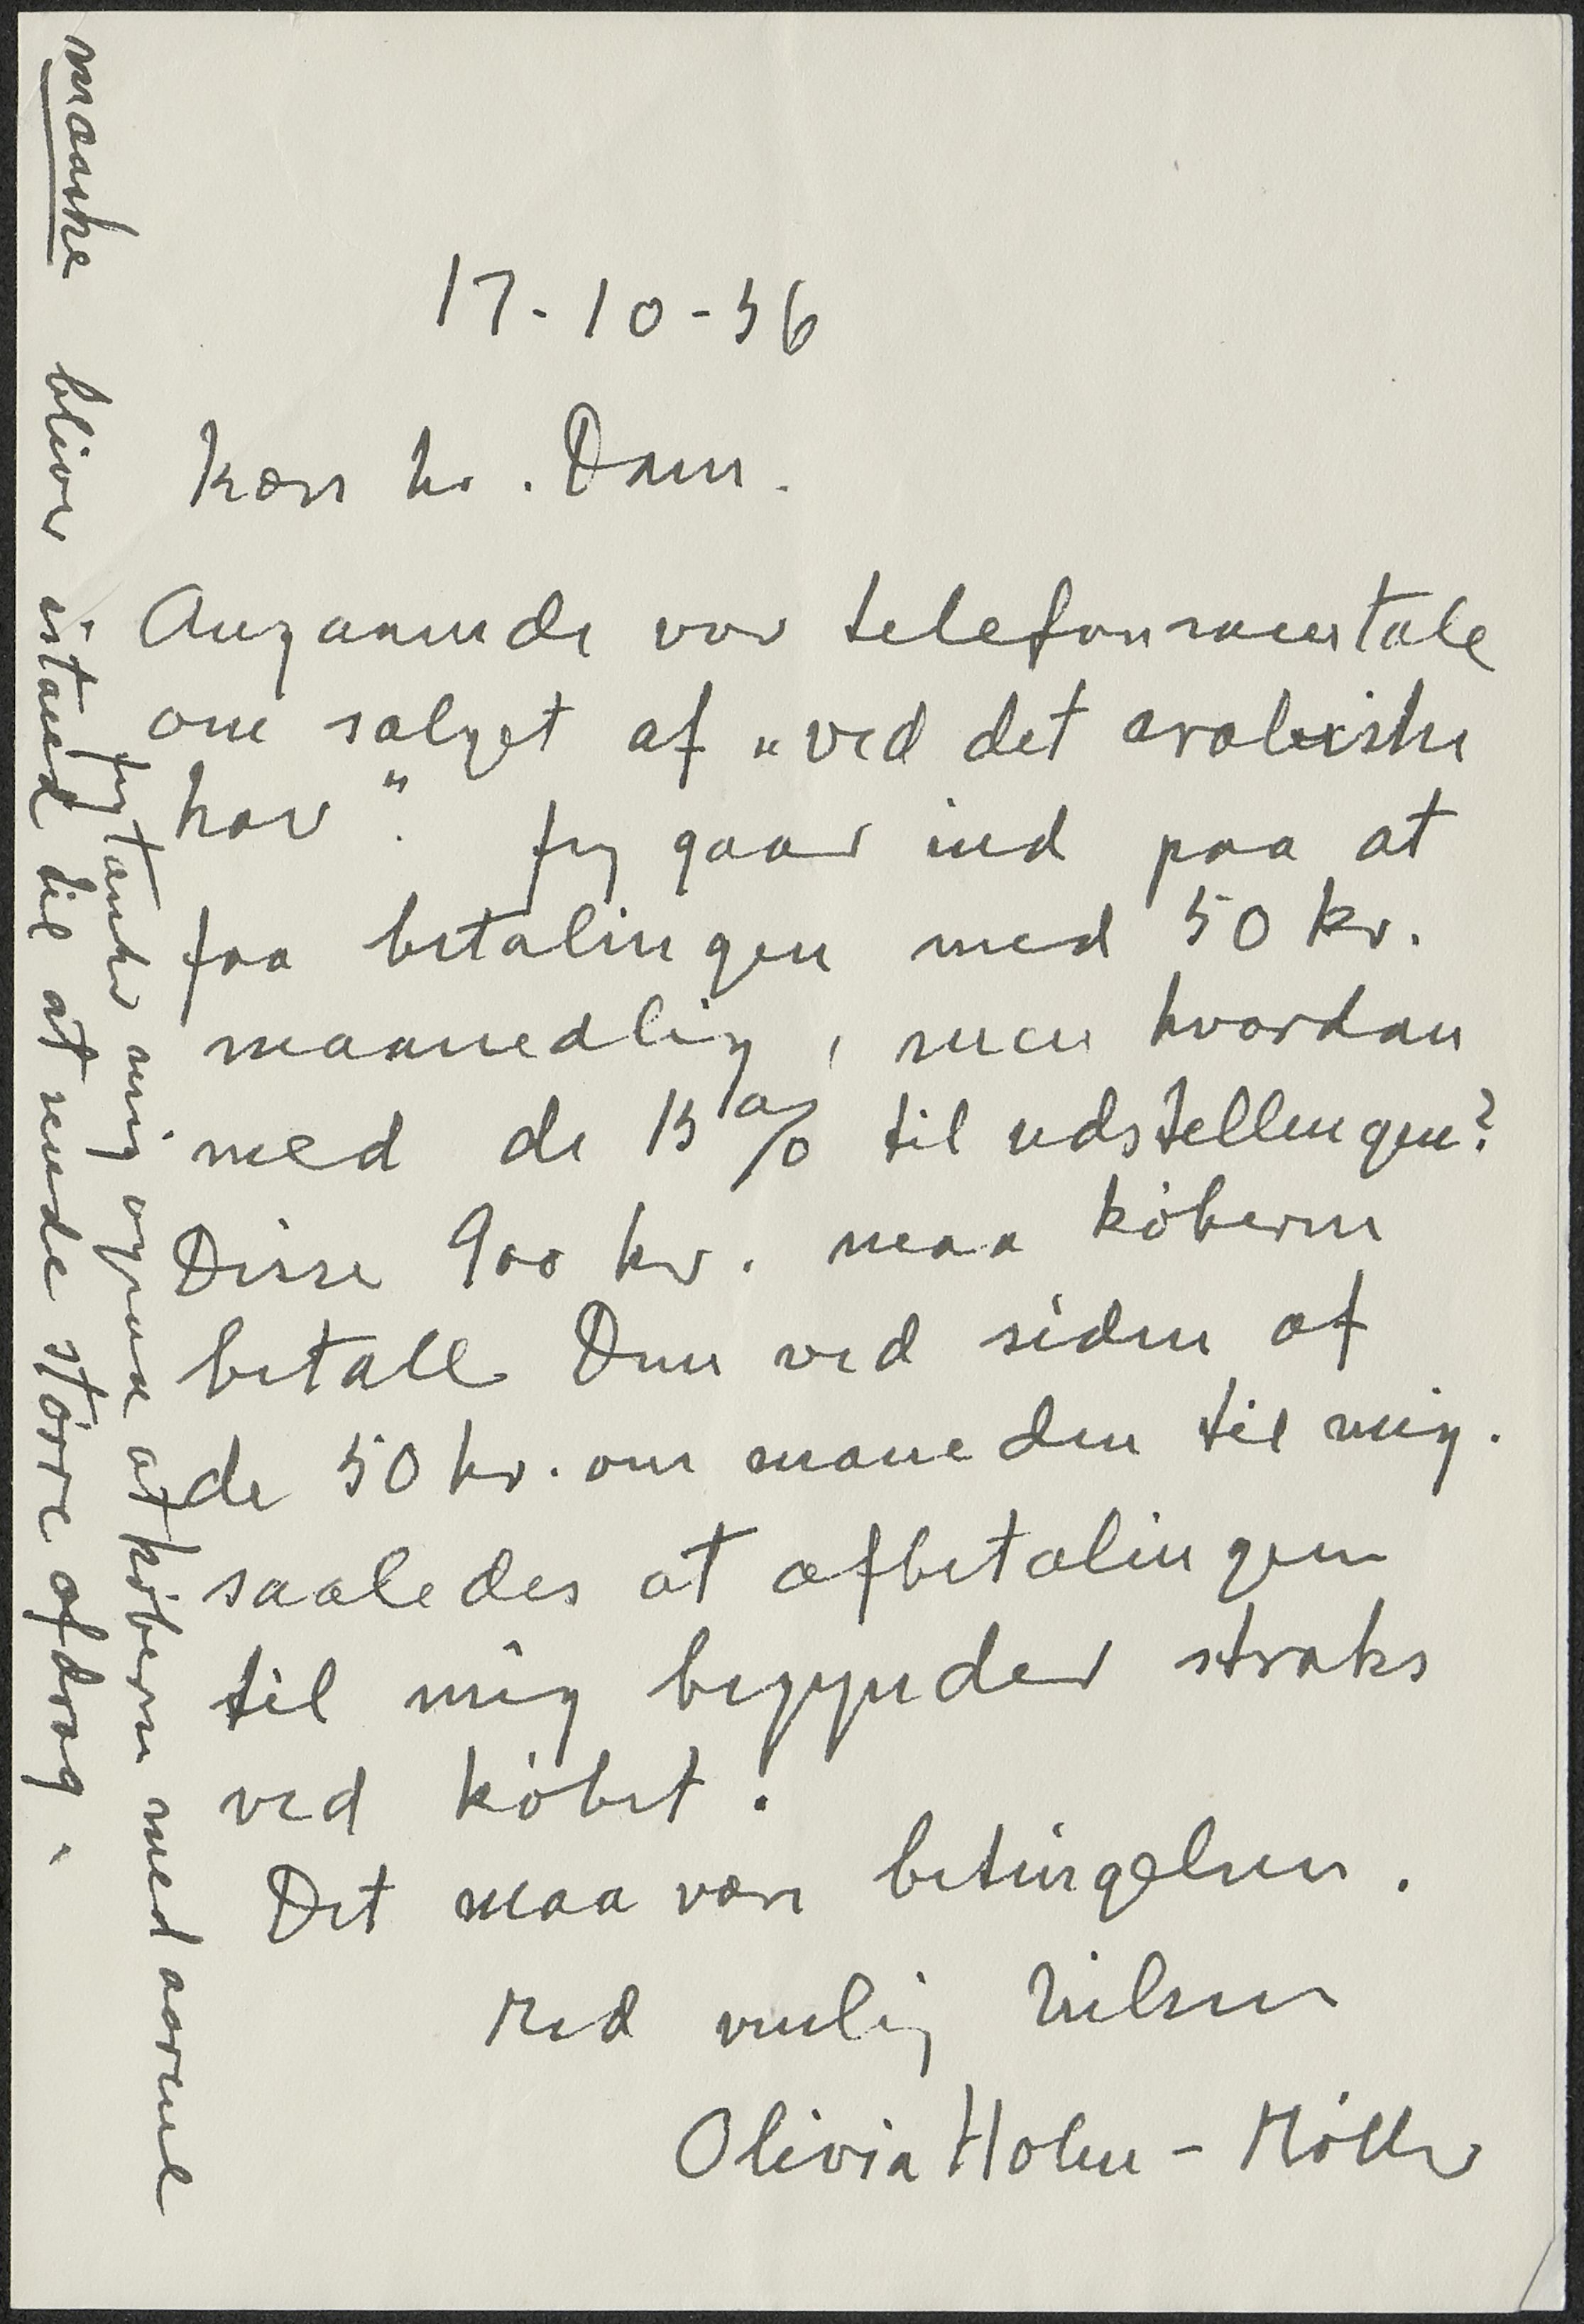 17-10-56
Kære hr. Dam.
Angaaende vor telefonsamtale
om salget af „ved det arabiske
hav". Jeg gaar ind paa at
faa betalingen med 50 kr.
maanedlig, men hvordan
med de 15% til udstellingen?
Disse 900 kr. maa køberen
betale Dem ved siden af
de 50 kr. om maaneden til mig.
saaledes at afbetalingen
til mig begynder straks
ved købet.
Det maa være betingelsen.
Med venlig hilsen
Olivia Holm-Møller
Jeg tænker mig ogsaa at køberen med aarene
maaske bliver istand til at sende større afdrag.